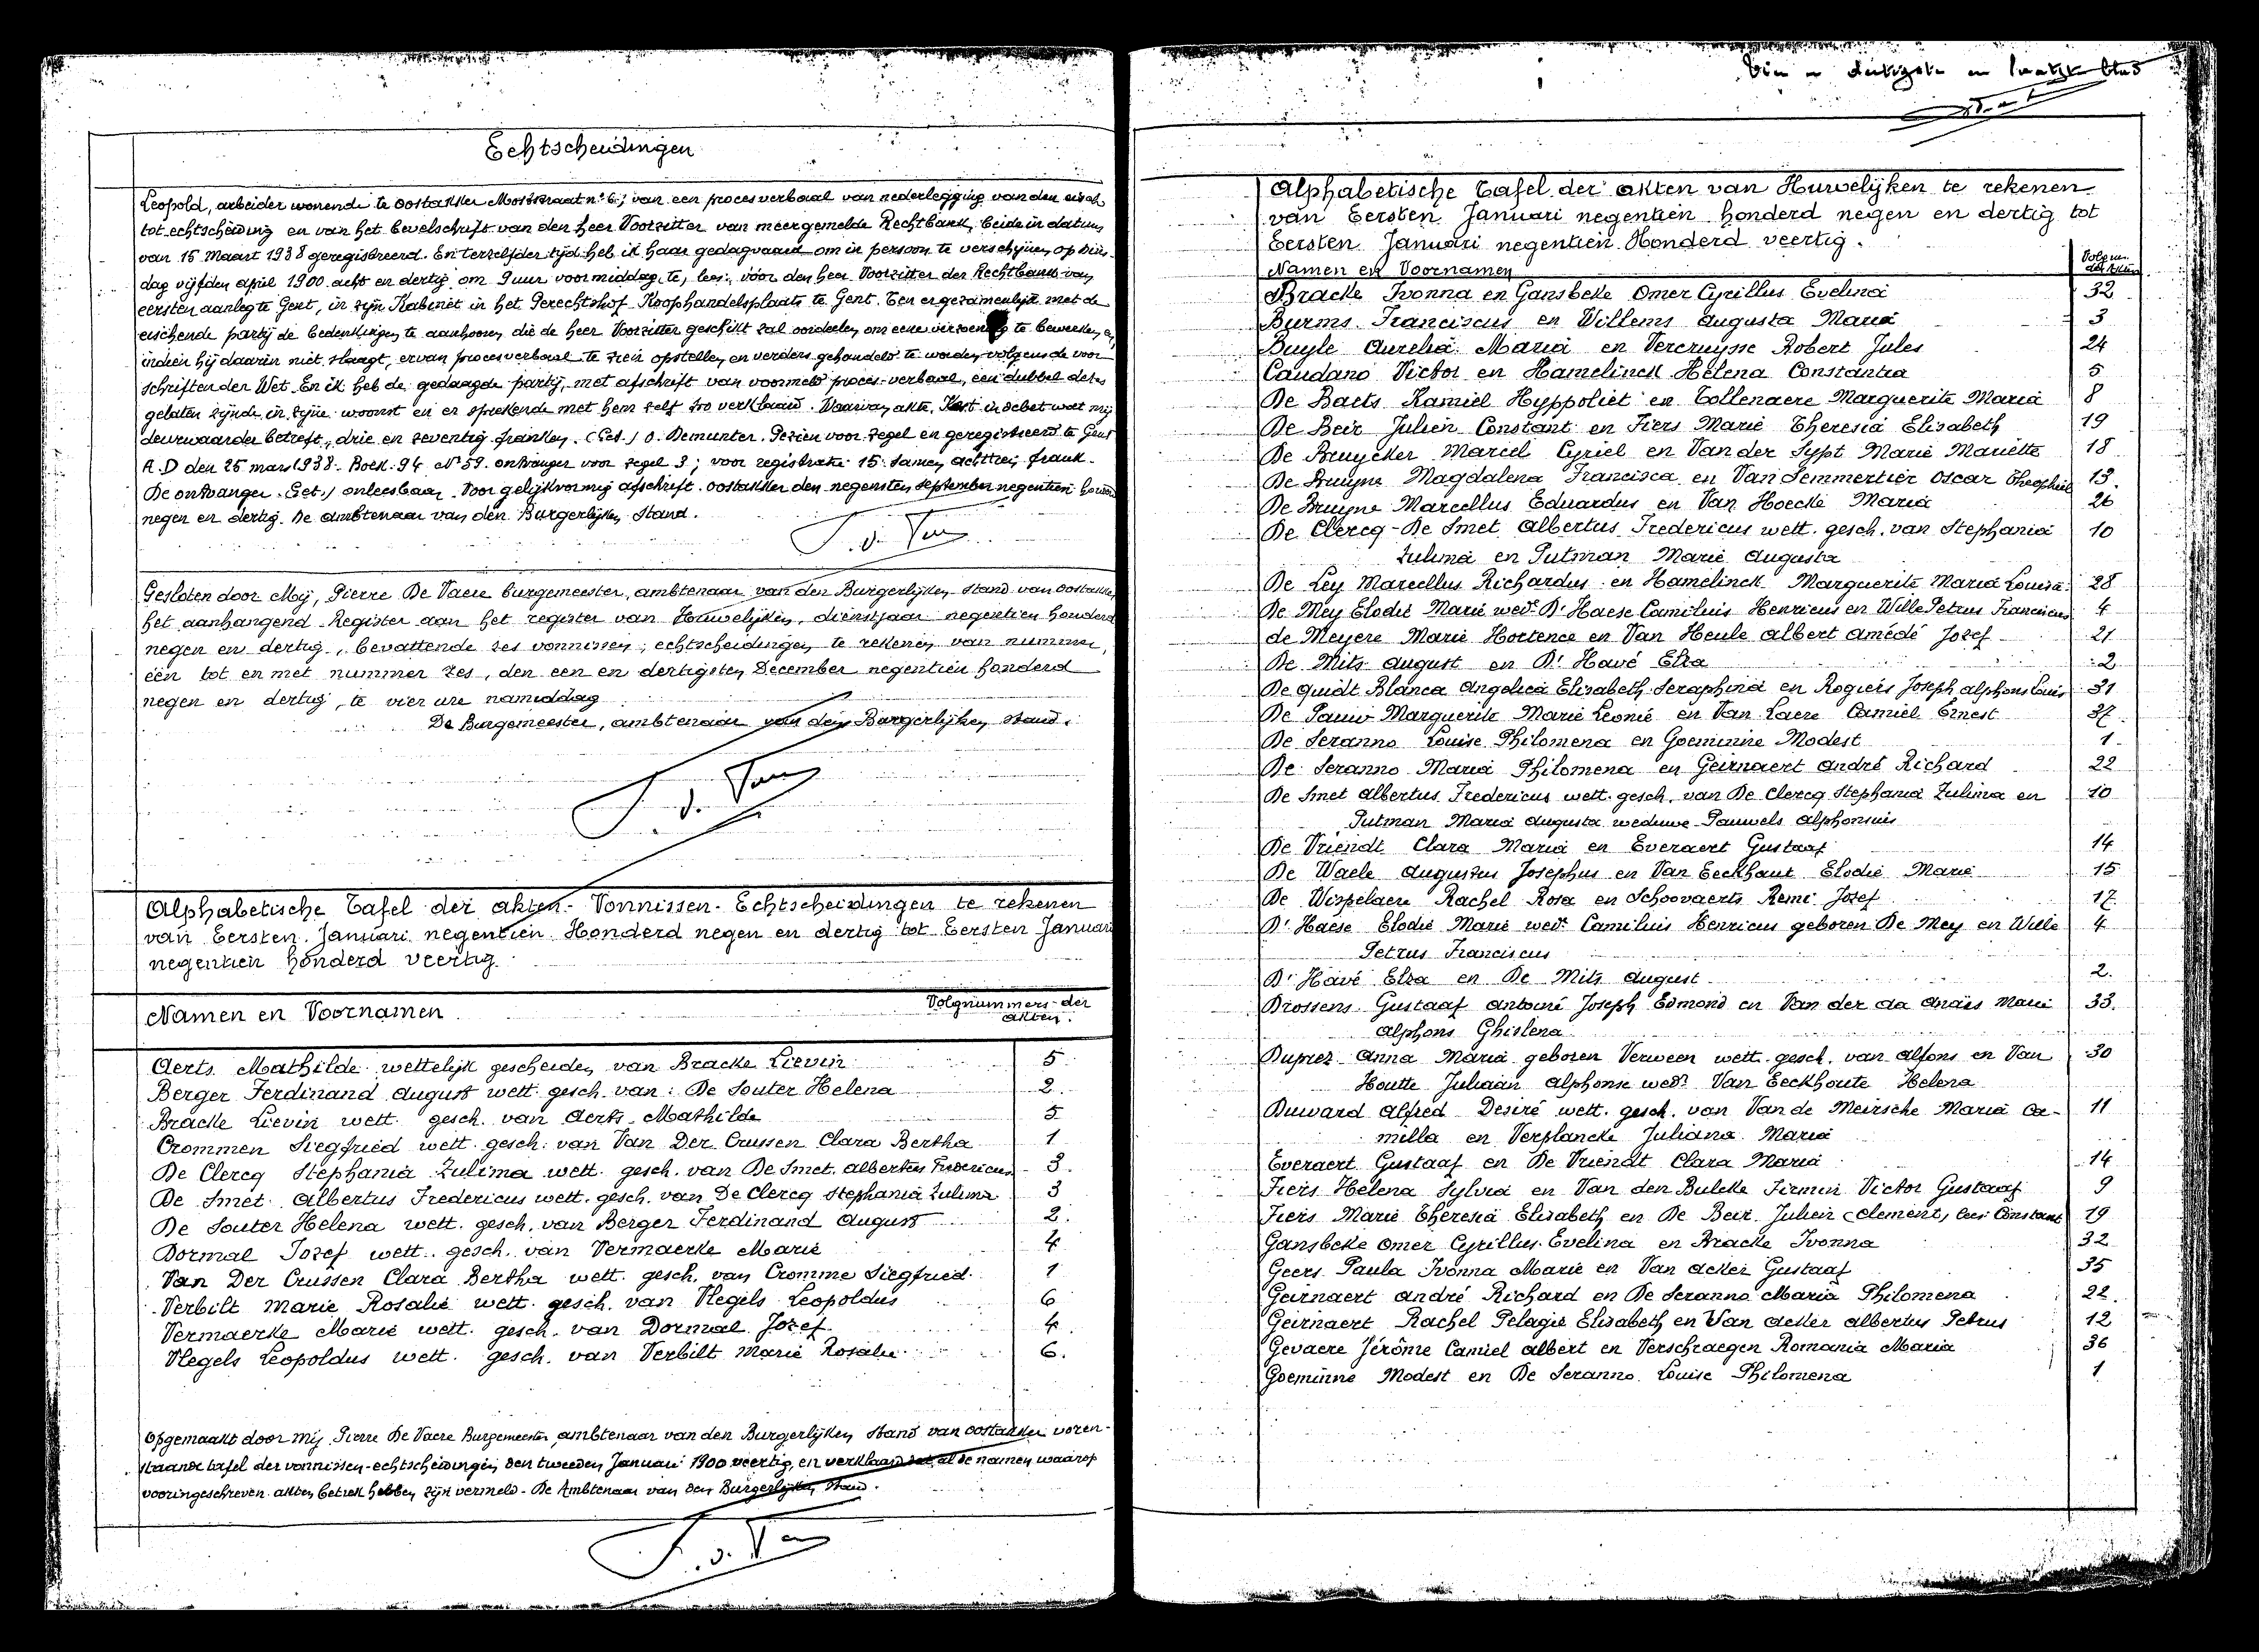 Echtscheidingen
Leopold, arbeider wonende te Oostakker Moststraat n° 6; van een proces verbaal van nederlegging van den eisch
tot echtscheiding en van het bevelschrift van den heer Voorzitter van meergemelde Rechtbank, beide in datum
van 15 Maart 1938 geregistreerd. En terzelfder tijd heb ik haar gedagvaard om in persoon te verschijnen op dins-
dag vijfden april 1900 acht en dertig om 9 uur voormiddag, te, lees: vóór den heer Voorzitter der Rechtbank van
eersten aanleg te Gent, in zijn Kabinet in het Gerechtshof Koophandelsplaats te Gent. Ten er gezamenlijk met de
eischende partij de bedenkingen te aanhooren die de heer Voorzitter geschikt zal oordeelen om eene verzoening te bewerken, en,
indien hij daarin niet slaagt, ervan proces verbaal te zien opstellen en verders gehandeld te worden volgens de voor
schriften der Wet. En ik heb de gedaagde partij, met afschrift van voormeld proces-verbaal, een dubbel dezes
gelaten zijnde in zijne woonst en er sprekende met hem zelf zoo verklaard. Waarvan akte, Kost in debet wat mij
deurwaarder betreft, drie en zeventig franken. (Get.) O. Demunter. Gezien voor zegel en geregistreerd te Gent
A.D den 25 mars 1938. Boek. 94 N° 59. ontvanger voor zegel 3; voor registratie 15. Samen achttien frank.
De ontvanger. Get.) onleesbaar. Voor gelijkvormig afschrift. Oostakker den negensten september negentien honderd
negen en dertig. De ambtenaar van den Burgerlijken Stand.
Gesloten door Mij, Pierre De Vaere burgemeester, ambtenaar van den Burgerlijken Stand van Oostakker
het aanhangend Register aan het register van Huwelijken, dienstjaar negentien honderd
negen en dertig, bevattende zes vonnissen, echtscheidingen te rekenen van nummer,
een tot en met nummer zes, den een en dertigsten December negentien honderd
negen en dertig, te vier ure namiddag
De Burgemeester, ambtenaar van den Burgerlijken Stand.
Alphabetische Tafel der akten-Vonnissen-Echtscheidingen te rekenen
van Eersten Januari negentien Honderd negen en dertig tot Eersten Januari
negentien honderd veertig.
Namen en Voornamen Volgnummers der akten.
Aerts Mathilde wettelijk gescheiden van Bracke Lievin 5
Berger Ferdinand August wett. gesch. van: De Souter Helena 2.
Bracke Lievin wett. gesch. van Aerts Mathilde 5
Crommen Siegfried wett. gesch. van Van Der Crussen Clara Bertha 1
De Clercq Stephania Zulima wett. gesch. van De Smet albertus Fredericus 3.
De Smet Albertus Fredericus wett. gesch. van De Clercq Stephania Zulima 3
De Souter Helena wett. gesch. van Berger Ferdinand August 2.
Dormal Jozef wett. gesch. van Vermaerke Marie 4
Van Der Crussen Clara Bertha wett. gesch. van Cromme Siegfried 1
Verbilt Marie Rosalie wett. gesch. van Vlegels Leopoldus 6
Vermaerke Marie wett. gesch. van Dormal Jozef 4.
Vlegels Leopoldus wett. gesch. van Verbilt Marie Rosalie 6.
Opgemaakt door mij Pierre De Vaere Burgemeester ambtenaar van den Burgerlijken Stand van Oostakker voren-
staande tafel der vonnissen-echtscheidingen den tweeden Januari 1900 veertig, en verklaard dat al de namen waarop
vooringeschreven akten betrek hebben zijn vermeld. De Ambtenaar van den Burgerlijken Stand.
Vier en dertigste en laatste blad
Alphabetische Tafel der akten van Huwelijken te rekenen
van Eersten Januari negentien honderd negen en dertig tot
Eersten Januari negentien Honderd veertig.
Namen en Voornamen
Bracke Ivonna en Gansbeke Omer Cyrillus Evelina 32
Burms Franciscus en Willems Augusta Maria 3
Buyle Aurelia Maria en Vercruysse Robert Jules 24
Caudano Victor en Hamelinck Helena Constantia 5
De Baets Kamiel Hyppoliet en Tollenaere Marguerite Maria 8
De Beir Julien Constant en Fiers Marie Theresia Elisabeth 19
De Bruycker Marcel Cyriel en Van der Sypt Marie Mariette 18
De Bruyne Magdalena Francisca en Van Semmertier Oscar Theophiel 13.
De Bruyne Marcellus Eduardus en Van Hoecke Maria 26
De Clercq-De Smet Albertus Fredericus wett. gesch. van Stephania 10
Zulima en Putman Marie Augusta
De Ley Marcellus Richardus en Hamelinck Marguerite Maria Louisa 28
De Mey Elodie Marie wed.e D'Haese Camilius Henricus en Wille Petrus Franciscus 4
de Meyere Marie Hortence en Van Heule albert amédé Jozef 21
De Mits August en D'Havé Elza 2
De Quidt Blanca Angelica Elisabeth Seraphina en Rogiers Joseph alphons Louis 31
De Pauw Marguerite Marie Leonie en Van Laere Camiel Ernest 37
De Seranno Louise Philomena en Goeminne Modest 1
De Seranno Maria Philomena en Geirnaert André Richard 22
De Smet Albertus Fredericus wett. gesch. van De Clercq Stephania Zulima en 10
Putman Maria Augusta weduwe Pauwels Alphonsius
De Vriendt Clara Maria en Everaert Gustaaf 14
De Waele Augustus Josephus en Van Eeckhaut Elodie Marie 15
De Wispelaere Rachel Rosa en Schoovaerts Remi Jozef 17
D'Haese Elodie Marie wed.e Camilius Henricus geboren De Mey en Wille 4
Petrus Franciscus
D'Havé Elza en De Mits August 2.
Drossens Gustaaf Antoine Joseph Edmond en Van der da Anaïs Marie 33.
Alphons Ghislena
Duprez Anna Maria geboren Verween wett. gesch. van Alfons en Van 30
Houtte Juliaan Alphonse wed.r Van Eeckhoute Helena
Duward Alfred Desiré wett. gesch. van Van de Meirsche Maria Ca- 11
milla en Verplancke Juliana Maria
Everaert Gustaaf en De Vriendt Clara Maria 14
Fiers Helena Sylvia en Van den Bulcke Firmin Victor Gustaaf 9
Fiers Marie Theresia Elisabeth en De Beir Julien (clement, lees: Constant 19
Gansbeke Omer Cyrillus Evelina en Bracke Ivonna 32
Geers Paula Ivonna Marie en Van Acker Gustaaf 35
Geirnaert André Richard en De Seranno Maria Philomena 22.
Geirnaert Rachel Pelagie Elisabeth en Van Acker albertus Petrus 12
Gevaere Jérôme Camiel albert en Verschraegen Romania Maria 36
Goeminne Modest en De Seranno Louise Philomena 1